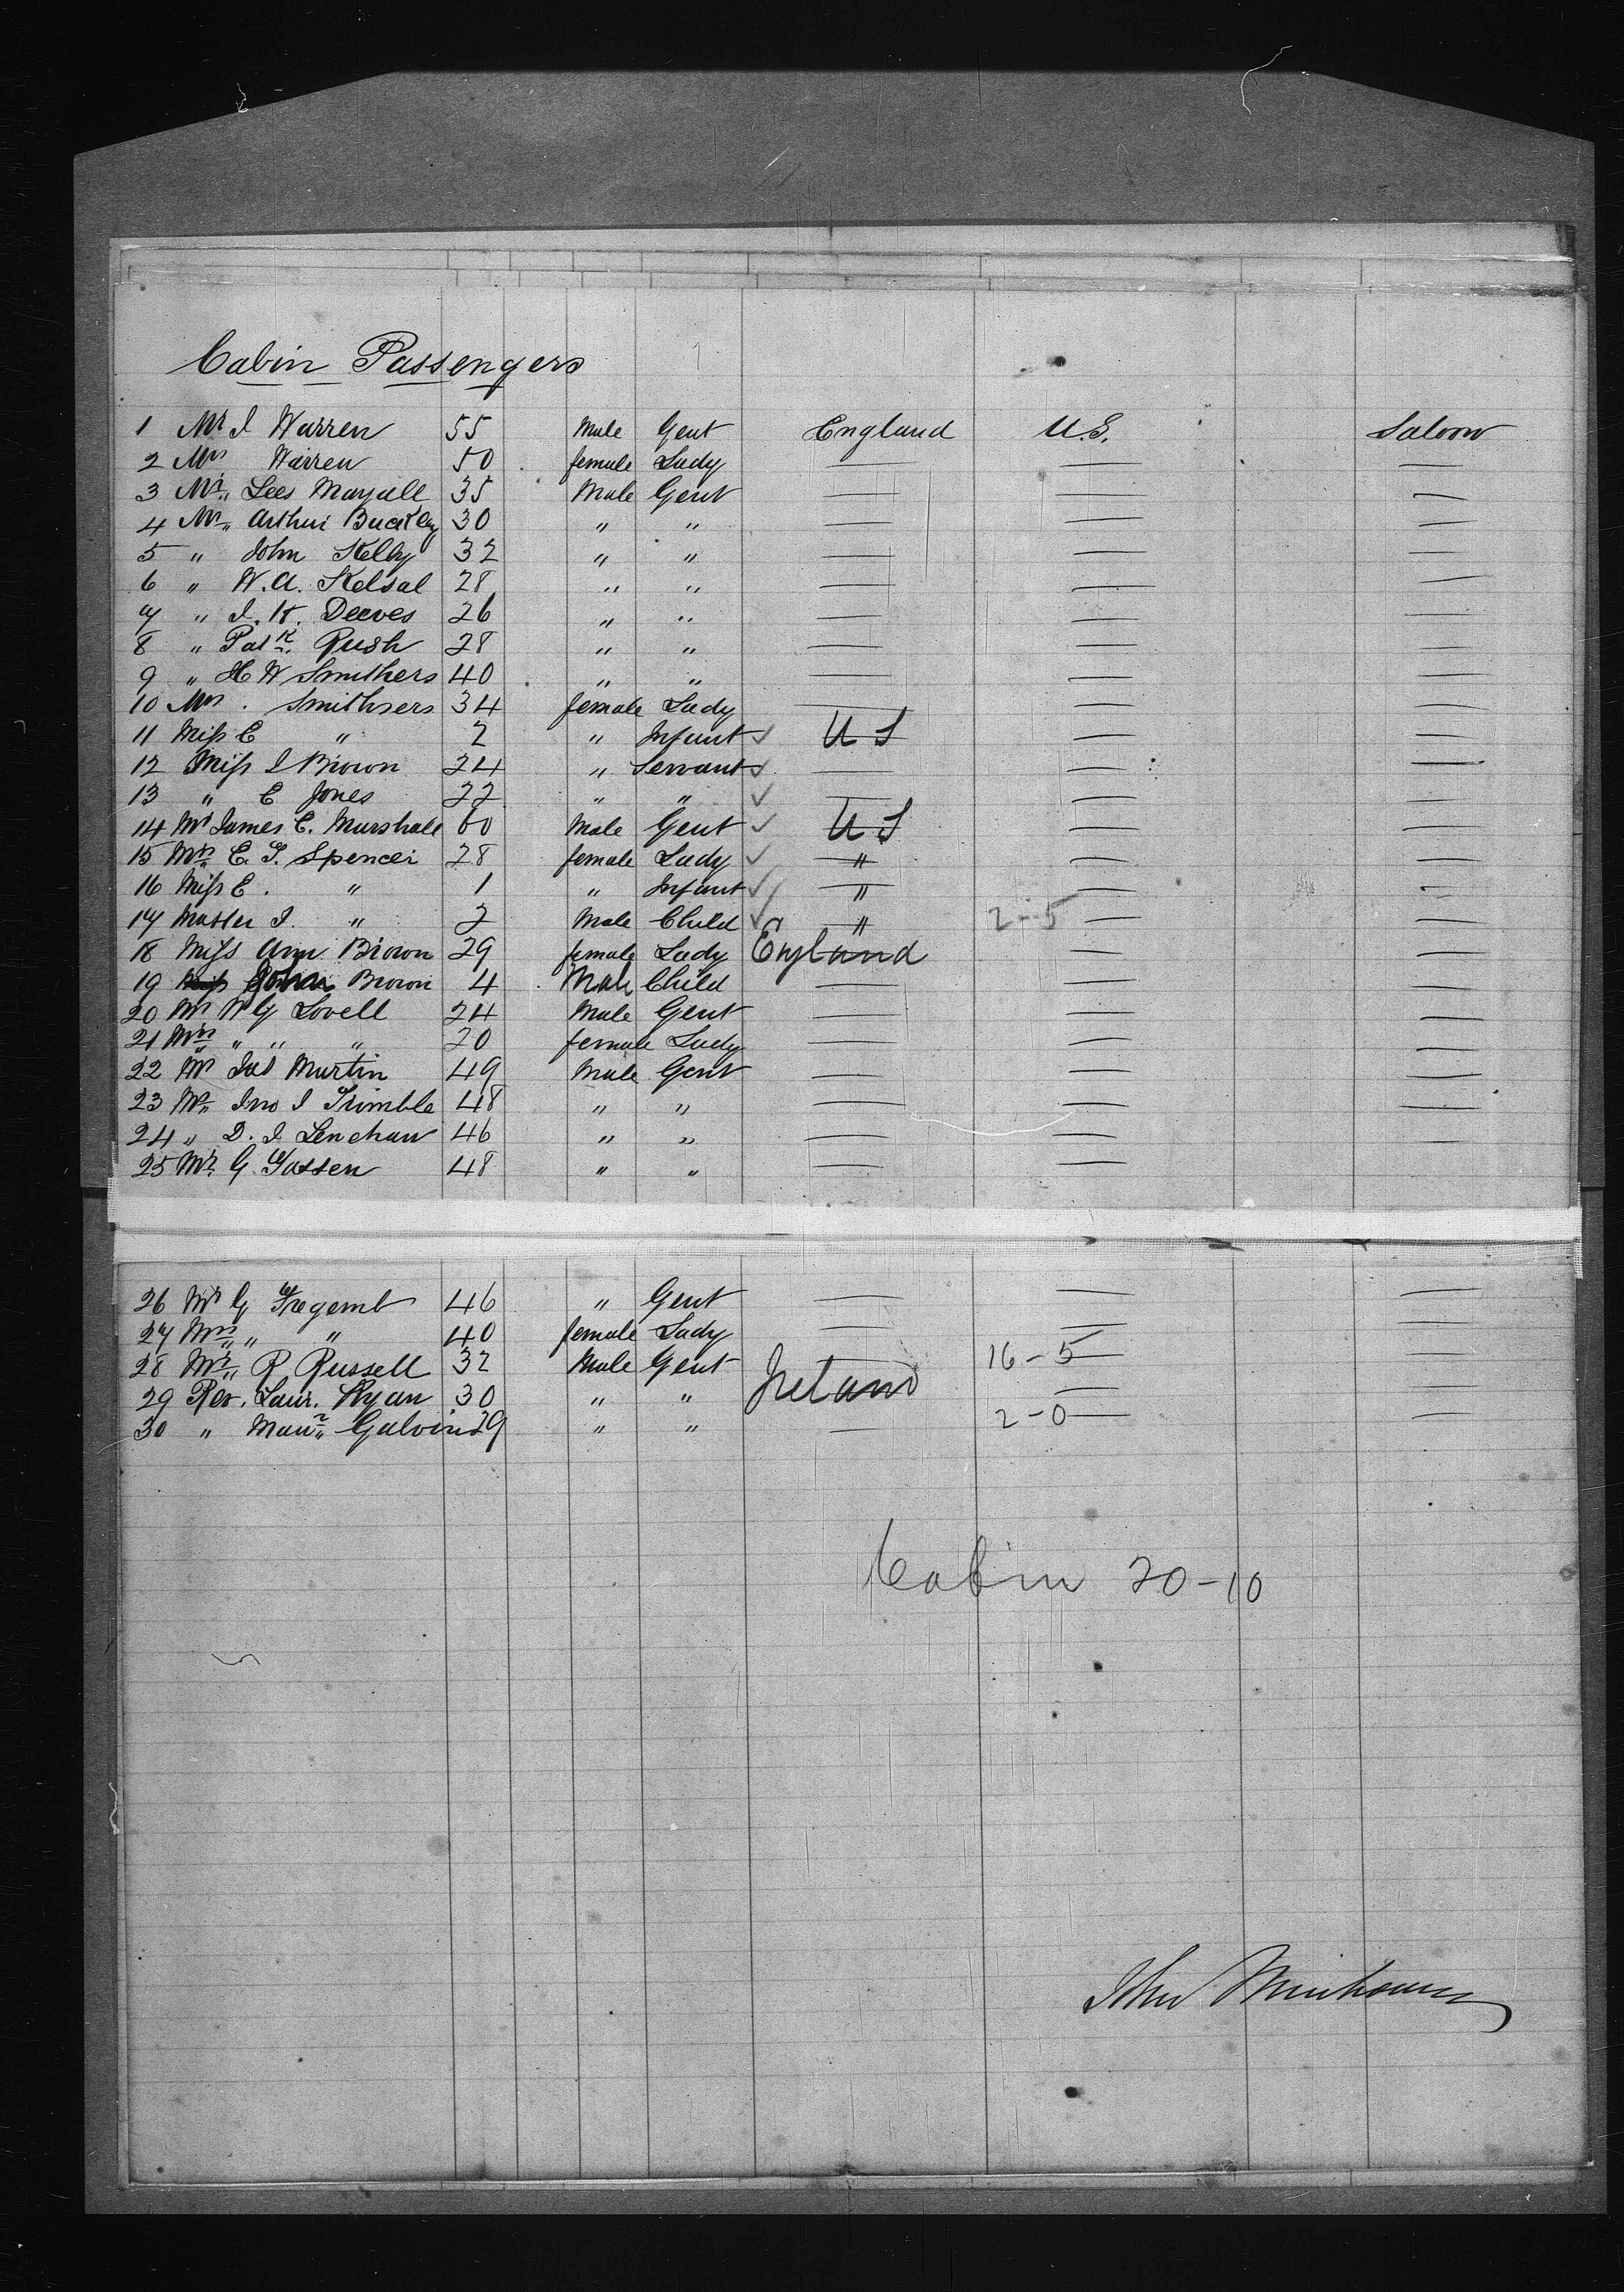 Cabin Passengers
1 Mr I Warren 55 Male Gent England U.S. Saloon
2 Mrs Warren 50 female Lady — — —
3 Mr „ Lees Mayall 35 Male Gent — — —
4 Mr „ Arthur Buckley 30 „ „ — — —
5 „ John Kelly 32 „ „ — — —
6 „ W. A. Kelsal 28 „ „ — — —
7 „ I. K. Deeves 26 „ „ — — —
8 „ Patk. Rush 28 „ „ — — —
9 „ H W Smithers 40 „ „ — — —
10 Mrs . Smithsers 34 female Lady — — —
11 Miss E „ 2 „ Infant ✓ U S — —
12 Miss I Brown 24 „ Servant ✓ — — —
13 „ E Jones 22 „ „ ✓ — — —
14 Mr James C. Marshall 60 Male Gent ✓ U S — —
15 Mrs „ E. S. Spencer 28 female Lady ✓ „ — —
16 Miss E . „ 1 „ Infant ✓ „ — —
17 Master I „ 2 Male Child ✓ „ 2-5 — —
18 Miss Ann Brown 29 female Lady England — —
19 Brown 4 Male Child — — —
20 Mr W G Lovell 24 Male Gent — — —
21 Mrs „ „ „ 20 female Lady — — —
22 Mr Jas Martin 49 Male Gent — — —
23 Mr „ Jno I Trimble 48 „ „ — — —
24 „ D. I. Lenehan 46 „ „ — — —
25 Mr. G. 48 „ „ — — —
26 Mr G 46 „ Gent — — —
27 Mrs „ „ „ 40 female Lady — — —
28 Mr „ R Russell 32 Male Gent — 16-5 — —
29 Rev. Laur. Ryan 30 „ „ Ireland — —
30 „ Maur „ Galvin 29 „ „ — 2-0 — —
Cabin 20-10
John